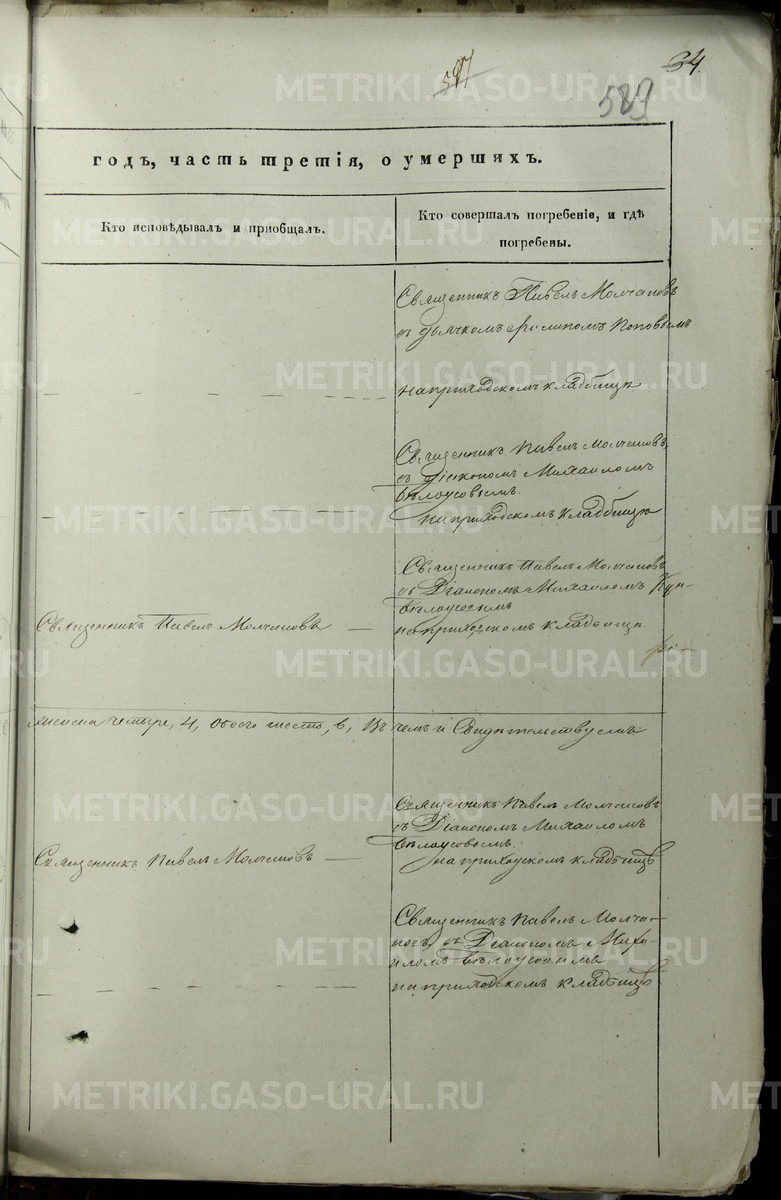 597
34
529
годъ, часть третія, о умершихъ.
Кто исповѣдывалъ и пріобщалъ.
Кто совершалъ погребеніе, и гдѣ
погребены.
Священникъ Павелъ Молчановъ
съ дьячкомъ Филипомъ Поповымъ
на приходскомъ кладбищѣ
Священникъ Павелъ Молчановъ
съ Діакономъ Михаиломъ
Бѣлоусовымъ.
на приходскомъ кладбищѣ
Священникъ Павелъ Молчановъ
съ Діакономъ Михаиломъ
Бѣлоусовымъ
Священникъ Павелъ Молчановъ
на приходскомъ кладбищѣ
четыре, 4, обоего шесть, 6, Въ чемъ и Свидѣтельствуемъ
Священникъ Павелъ Молчановъ
съ Діакономъ Михаиломъ
Бѣлоусовымъ.
Священникъ Павелъ Молчановъ
на приходскомъ кладбищѣ
Священникъ Павелъ Молча-
новъ, съ Діакономъ Миха-
иломъ Бѣлоусовымъ
на приходскомъ кладбищѣ
METRIKI.GASO-URAL.RU